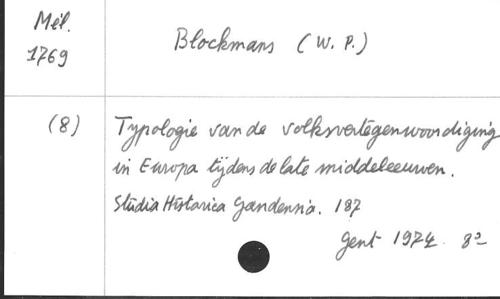 Mél.
1769
Blockmans (W. P.)
(8)
Typologie van de volksvertegenwoordiging
in Europa tijdens de late middeleeuwen.
Studia Historica Gandensia. 187
Gent 1974. 8°